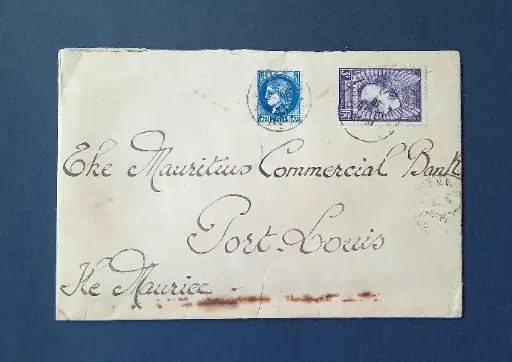 The Mauritius Commercial Bank
Port-Louis
Ile Maurice